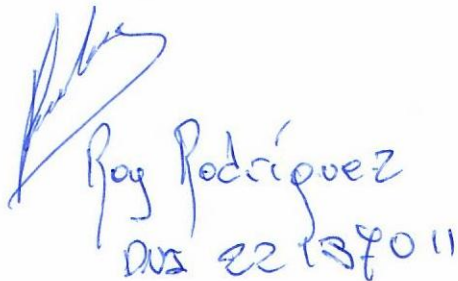 Roy Rodríguez
DNI 22137011